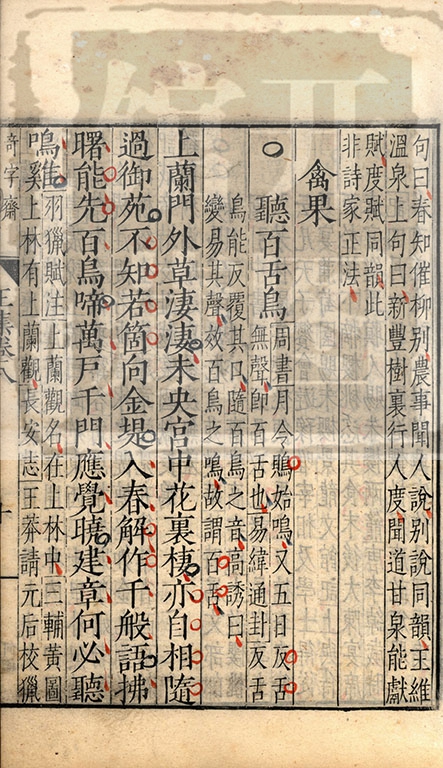 句曰春知催柳别農事聞人說别說同韻王維
溫泉上句曰新豐樹裏行人度聞道甘泉能獻
賦度賦同韻此
非詩家正法
禽果
○聽百舌鳥周書月令鵙始鳴又五日反舌
無聲即百舌也易緯通卦反舌
鳥能反覆其口隨百鳥之音高誘曰
變易其聲效百鳥之鳴故謂百舌
上蘭門外草淒淒未央宮中花裏棲亦自相隨
過御苑不知若箇向金堤入春解作千般語拂
曙能先百鳥啼萬戶千門應覺曉建章何必聽
鳴雞羽獵賦注上蘭觀名在上林中三輔黃圖
上林有上蘭觀長安志王莽請元后校獵